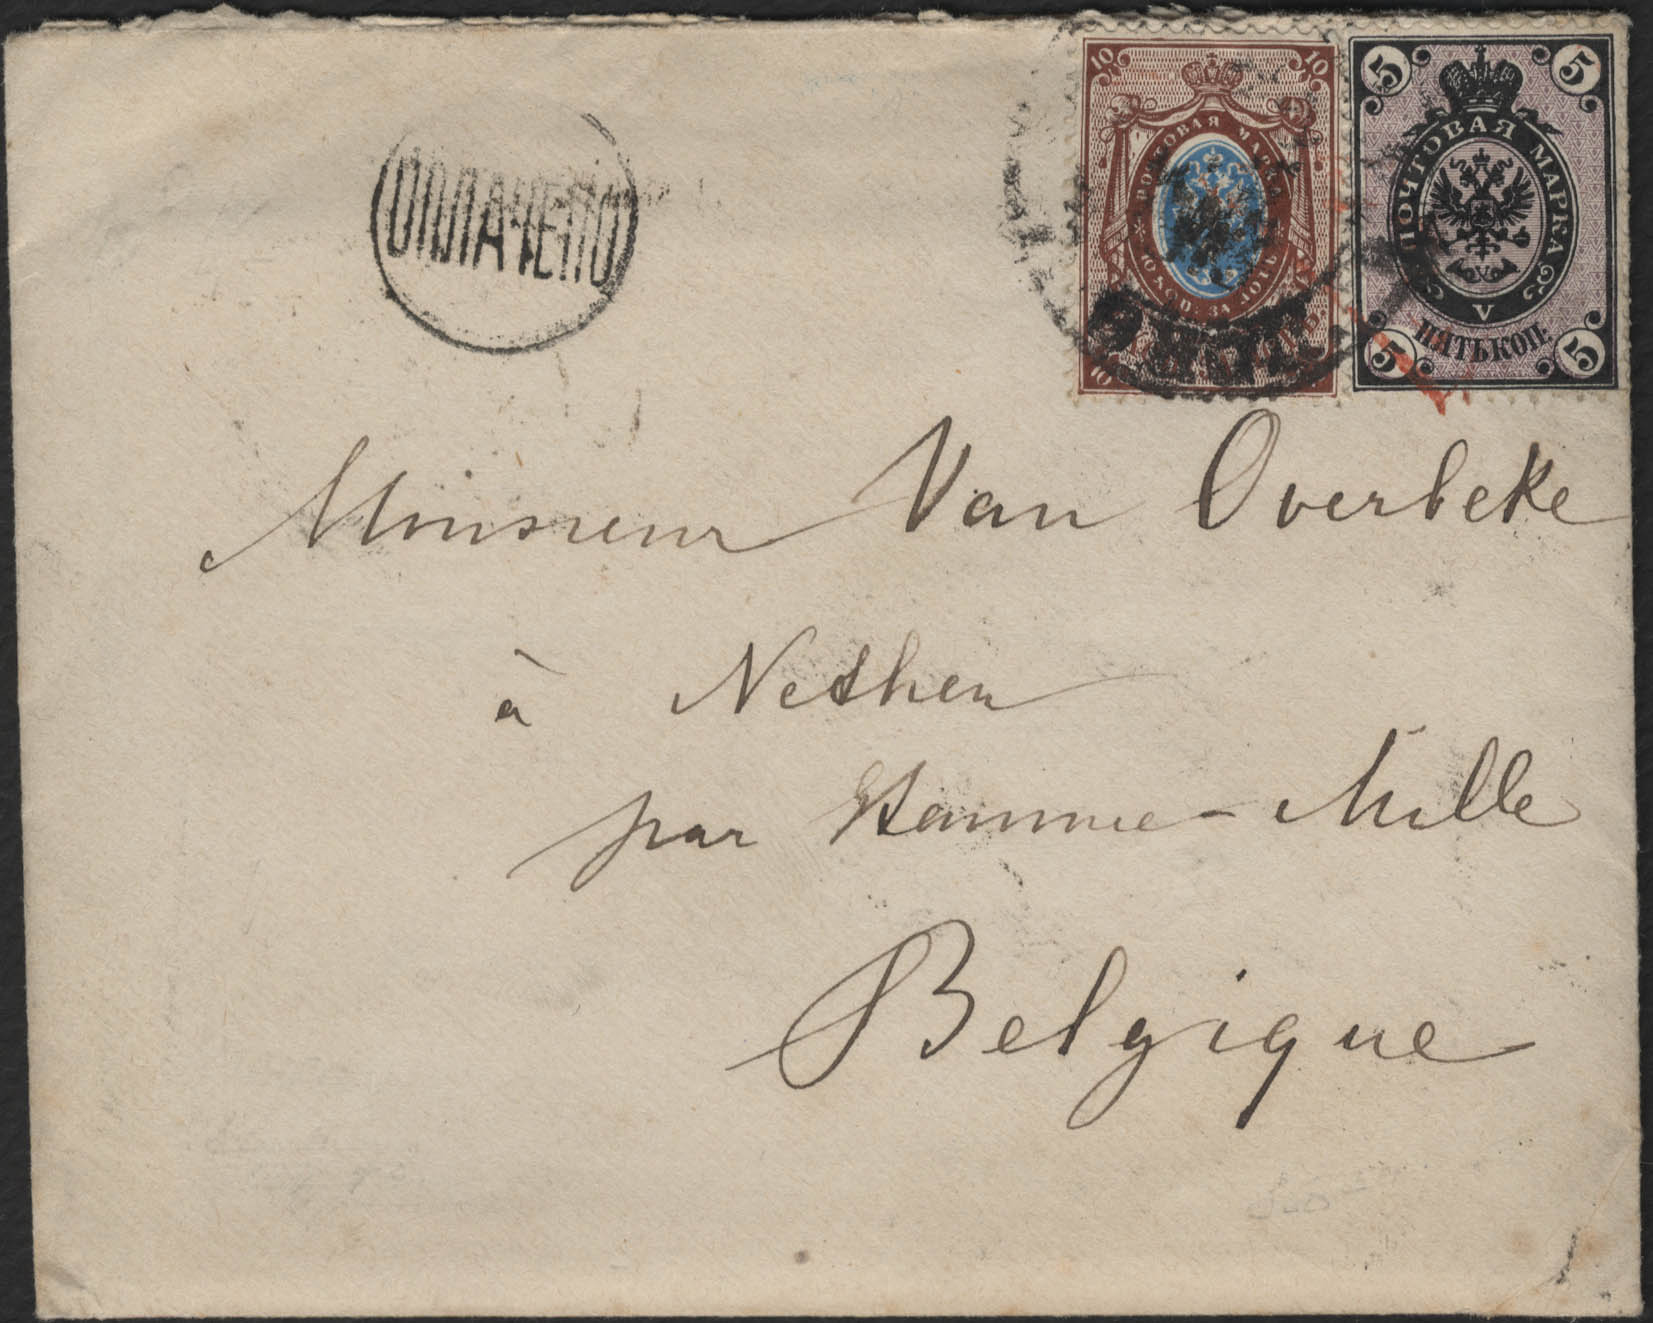 ОПЛАЧЕНО
10 10
ПОЧТОВАЯ МАРКА
10 КОП. ЗА ЛОТЪ
10
5 5
ПОЧТОВАЯ МАРКА
V
ПЯТЬ КОП:
5 5
Monsieur Van Overbeke
à Nethen
par Hamme-Mille
Belgique